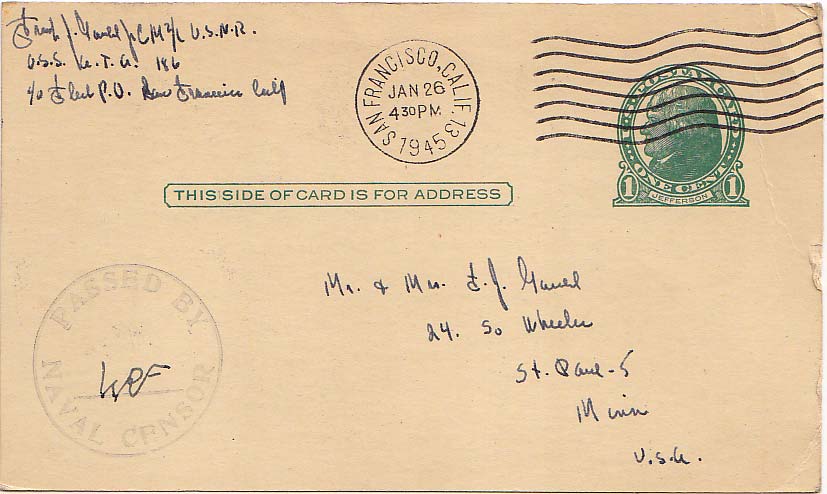 Frank J. Jr. CM 2/c U.S.N.R.
U.S.S. 186
c/o Fleet P.O. San Francisco Calif
SAN FRANCISCO, CALIF. 13
JAN 26
430 PM
1945
POSTAL CARD
ONE CENT
1 JEFFERSON 1
THIS SIDE OF CARD IS FOR ADDRESS
Mr. & Mrs. F. J.
24. So Wheeler
St. Paul-5
Minn
U.S.A.
PASSED BY
NAVAL CENSOR